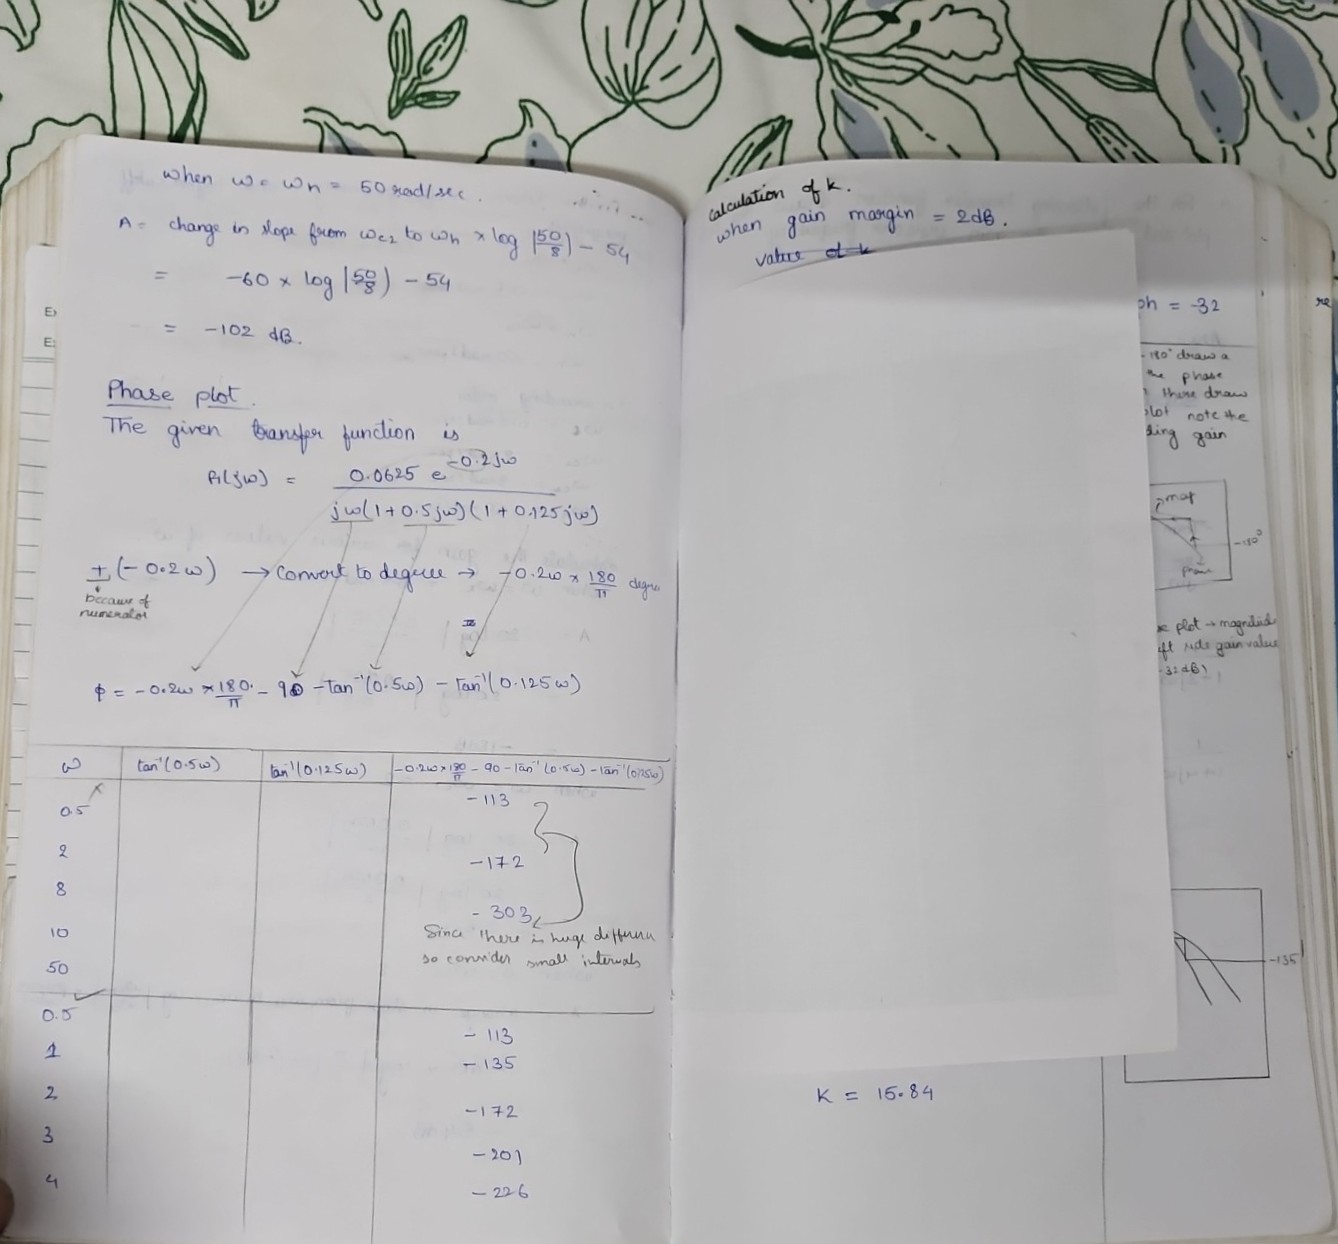 when ω = ωh = 50 rad/sec.
A = change in slope from ωc2 to ωh × log |50/8| - 54
= -60 × log |50/8| - 54
= -102 dB.
Phase plot.
The given transfer function is
G(jω) = 0.0625 e^-0.2jω / jω(1+0.5jω)(1+0.125jω)
+ (-0.2ω) → Convert to degree → -0.2ω × 180/π degre
because of
numerator
φ = -0.2ω × 180/π - 90 - Tan⁻¹(0.5ω) - Tan⁻¹(0.125ω)
ω tan⁻¹(0.5ω) tan⁻¹(0.125ω) -0.2ω × 180/π - 90 - Tan⁻¹(0.5ω) - Tan⁻¹(0.125ω)
0.5 -113
2 -172
8 -303
10
50
Since there is huge differen
so consider small intervals
0.5 -113
1 -135
2 -172
3 -201
4 -226
Calculation of k.
when gain margin = 2dB.
value of k
ph = -32
re
-180° draw a
the phase
there draw
plot note the
ding gain
-180°
plot → magnitud
ft side gain value
-32 dB)
-135
K = 15.84
E
E